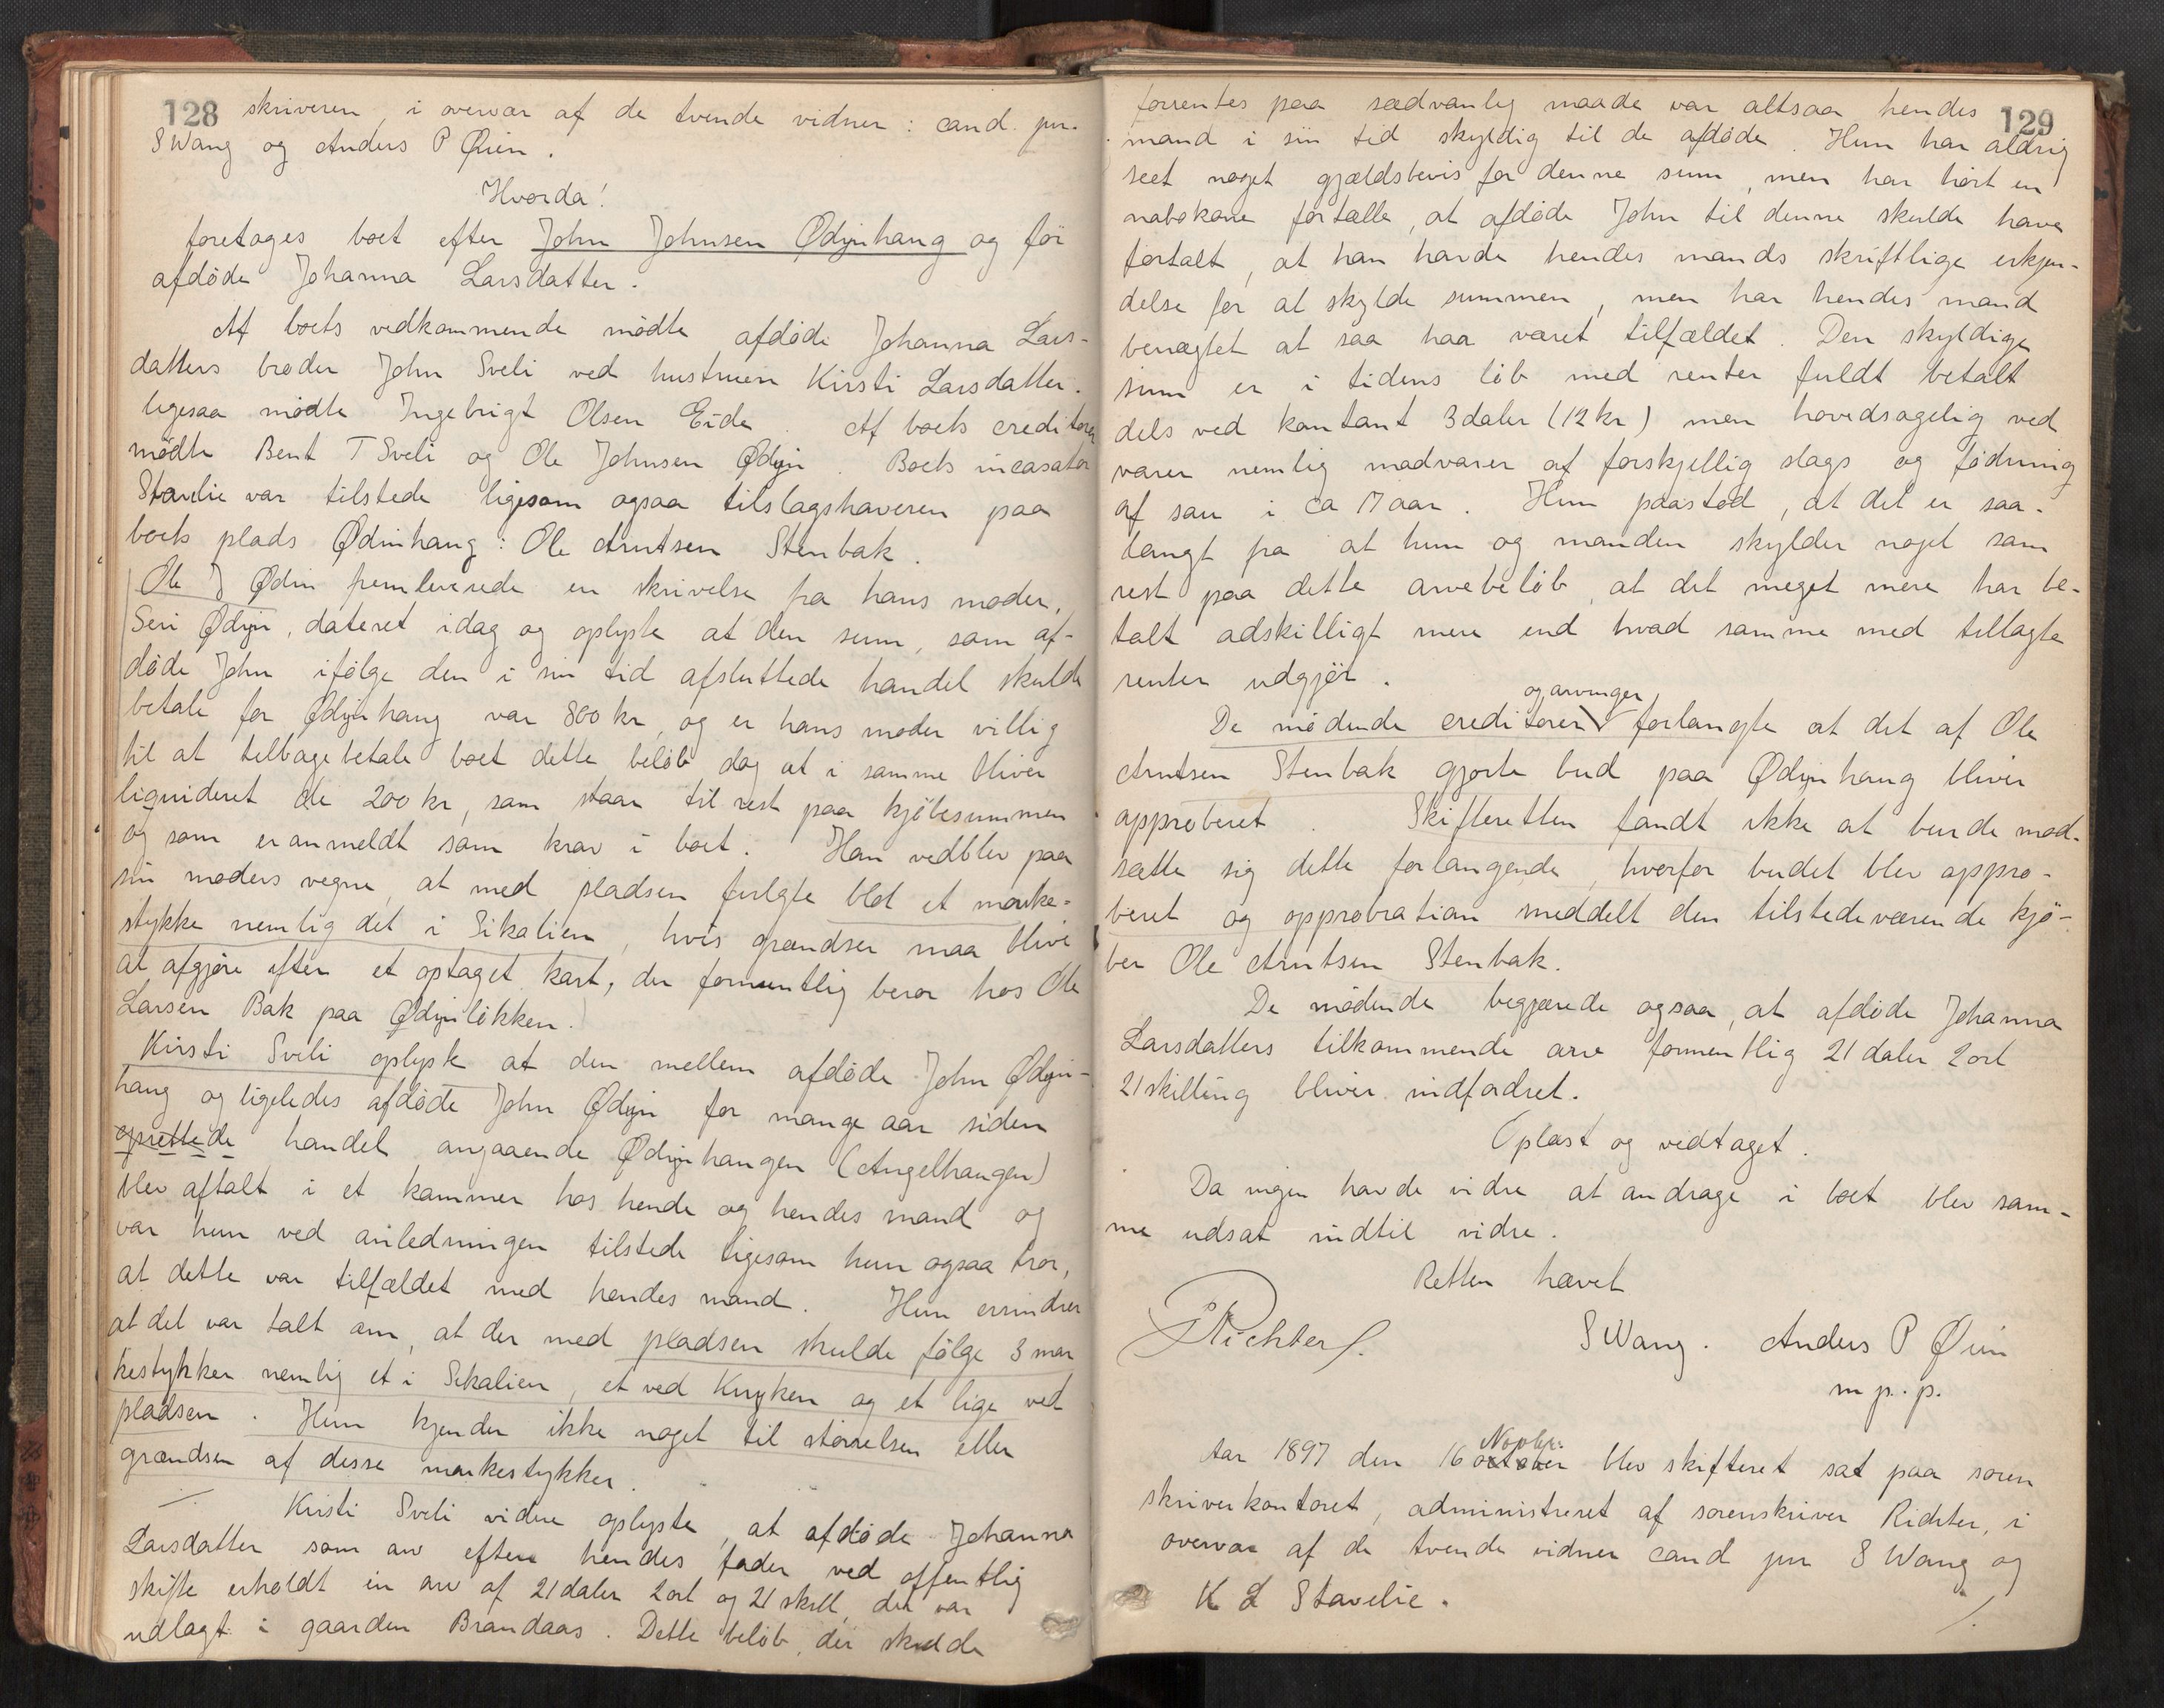 128 skriveren, i overvær af de tvende vidner: cand. jur.
S Wang og Anders P Øien.
Hvorda!
foretages boet efter John Johnsen Ødynhaug og før
afdøde Johanna Larsdatter.
Af boets vedkommende mødte afdøde Johanna Lars-
datters broder John Sveli ved hustruen Kirsti Larsdatter.
ligesaa mødte Ingebrigt Olsen Eide. Af boets creditorer
mødte Bent T Sveli og Ole Johnsen Ødyn. Boets incasator
Stavlie var tilstede ligesom ogsaa tilslagshaveren paa
boets plads Ødinhaug: Ole Arntsen Stenbak.
Ole J Ødin fremleverede en skrivelse fra hans moder,
Seri Ødyn, dateret idag og oplyste at den sum, som af-
døde John ifølge den i sin tid afsluttede handel skulde
betale for Ødynhaug var 800 kr, og er hans moder villig
til at tilbagebetale boet dette beløb dog at i samme bliver
liquideret de 200 kr, som staar til rest paa kjøbesummen
og som er anmeldt som krav i boet. Han vedblev paa
sin moders vegne, at med pladsen fulgte blot et marke-
stykke nemlig det i Sikalien, hvis grændser maa blive
at afgjøre efter et optaget kart, der formentlig beror hos Ole
Larsen Bak paa Ødynløkken.
Kirsti Sveli oplyste at den mellem afdøde John Ødyn-
haug og ligeledes afdøde John Ødyn for mange aar siden
oprettede handel angaaende Ødynhaugen (Angelhaugen)
blev aftalt i et kammer hos hende og hendes mand og
var hun ved anledningen tilstede ligesom hun ogsaa tror,
at dette var tilfældet med hendes mand. Hun erindrer
at det var talt om, at der med pladsen skulde følge 3 mar
kestykker nemlig et i Sikalien, et ved Knyken og et lige ved
pladsen. Hun kjender ikke noget til størrelsen eller
grændsen af disse markestykker.
Kirsti Sveli videre oplyste, at afdøde Johanna
Larsdatter som arv efter hendes fader ved offentlig
skifte erholdt en arv af 21 daler 2 ort og 21 skill, der var
udlagt i gaarden Brandaas. Dette beløb, der skulde
129
forrentes paa sædvanlig maade var altsaa hendes
mand i sin tid skyldig til de afdøde. Hun har aldrig
seet noget gjældsbevis for denne sum, men har hørt en
nabokone fortælle, at afdøde John til denne skulde have
fortalt, at han havde hendes mands skriftlige erkjen-
delse for at skylde summen, men har hendes mand
benægtet at saa har været tilfældet. Den skyldige
sum er i tidens løb med renter fuldt betalt
dels ved kontant 3 daler (12 kr) men hovedsagelig ved
varer nemlig madvarer af forskjellig slags og fødning
af sau i ca 17 aar. Hun paastod, at det er saa-
langt fra at hun og manden skylder noget som
rest paa dette arvebeløb, at det meget mere har be-
talt adskilligt mere end hvad samme med tillagte
renter udgjør.
og arvinger
De mødende creditorer forlangte at det af Ole
Arntsen Stenbak gjorte bud paa Ødynhaug bliver
approberet. Skifteretten fandt ikke at burde mod-
sætte sig dette forlangende, hvorfor budet blev appro-
beret og approbation meddelt den tilstedeværende kjø-
ber Ole Arntsen Stenbak.
De mødende begjærede ogsaa, at afdøde Johanna
Larsdatters tilkommende arv formentlig 21 daler 2 ort
21 skilling bliver indfodret.
Oplæst og vedtaget.
Da ingen havde vidre at andrage i boet blev sam-
me udsat indtil vidre.
Retten hævet
Richter.
S Wang. Anders P Øien
m p. p.
Novbr.
Aar 1897 den 16 october blev skifteret sat paa soren
skriverkontoret, administreret af sorenskriver Richter, i
overvær af de tvende vidner cand jur S Wang og
K L Stavelie.